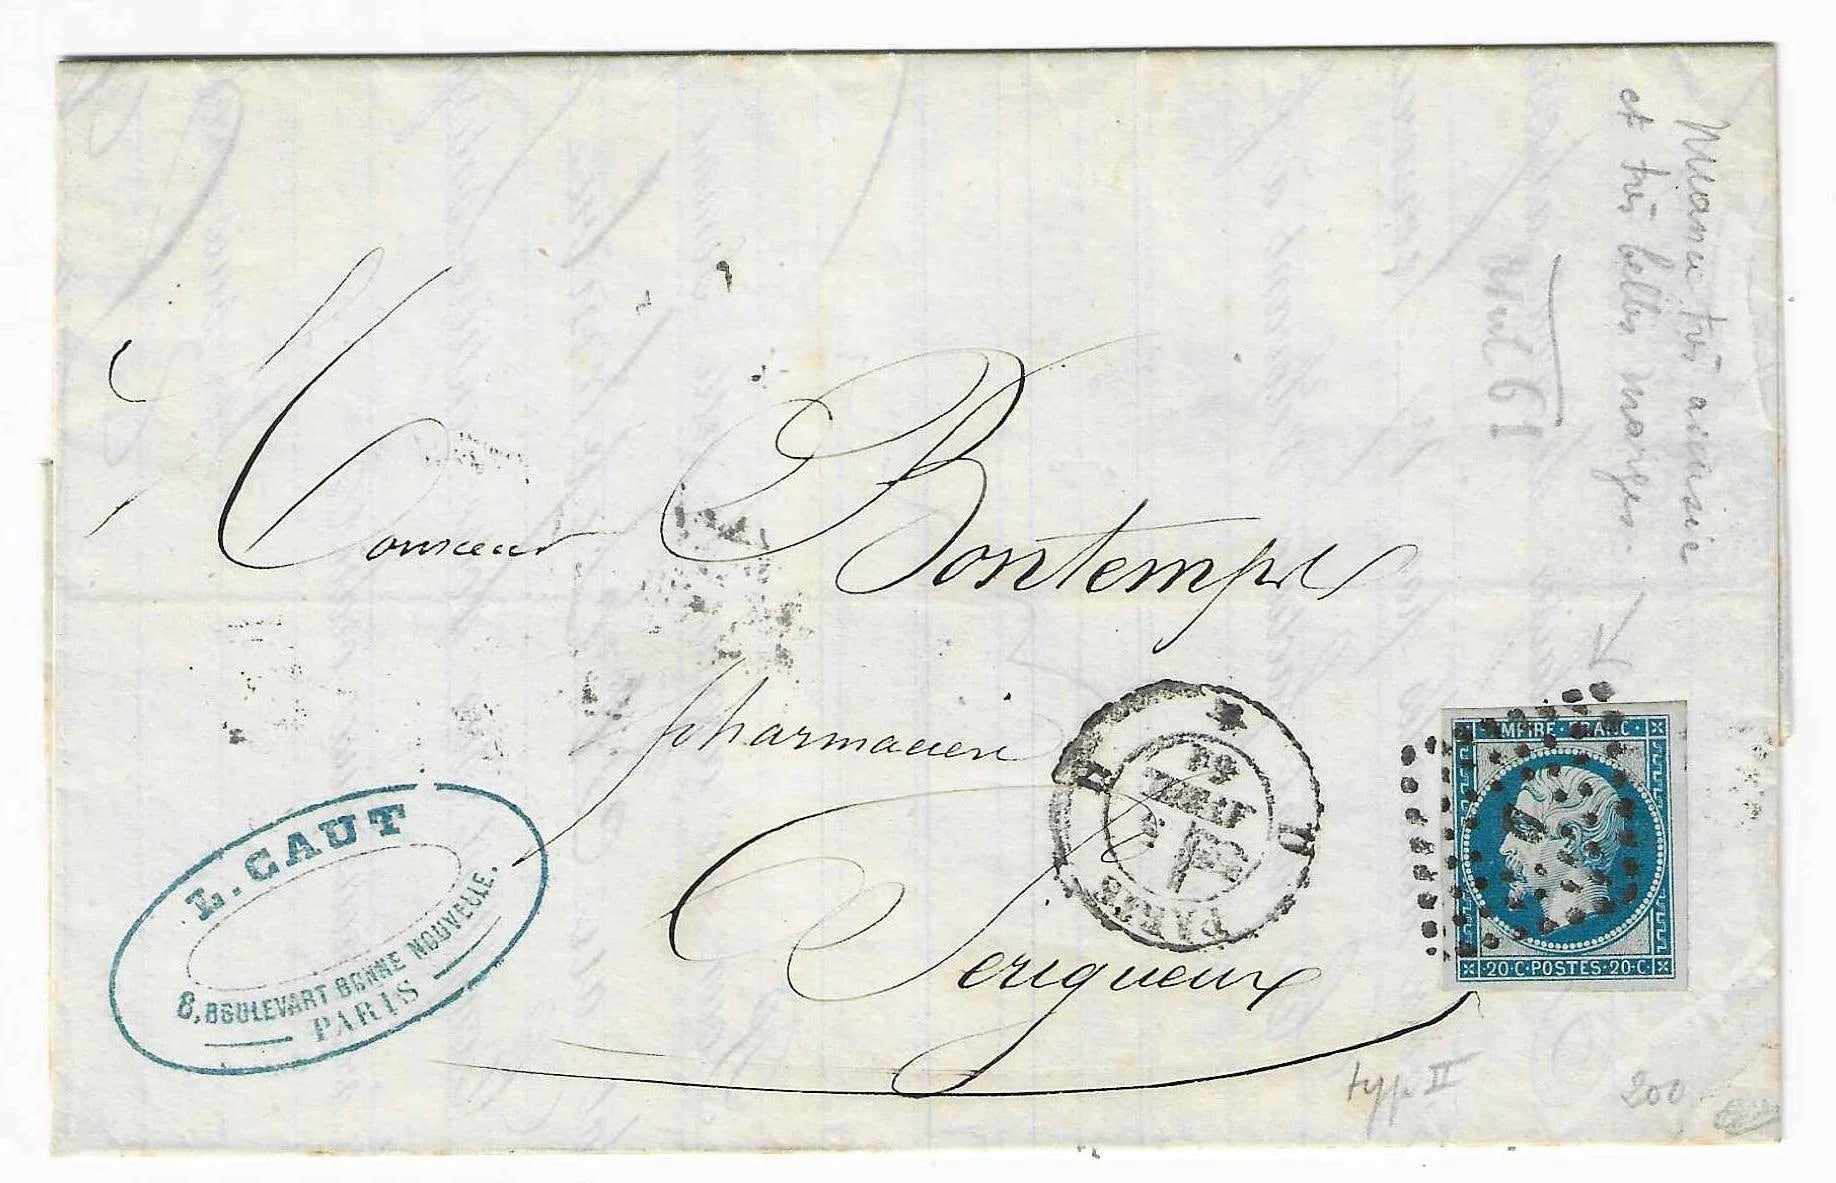 Monsieur Bontemps
pharmacien
Perigueux
L. CAUT
8, BOULEVART BONNE NOUVELLE.
PARIS
PARIS
D
EMPIRE · FRANC ·
· 20 · C · POSTES · 20 · C ·
Nuance très
et très belles marges.
typ II
200